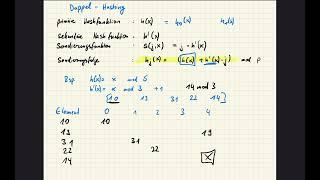 Doppel-Hashing
primäre Hashfunktion : h(x) = h₀(x) h₀(x)
sekundäre Hashfunktion : h'(x)
Sondierungsfunktion : s(j,x) = j · h'(x)
Sondierungsfolge : hⱼ(x) = (h(x) + h'(x)·j) mod p
Bsp h(x) = x mod 5
h'(x) = x mod 3 + 1 14 mod 3
[10 19 31 22 14]
Element 0 1 2 3 4
10 10
19 19
31 31
22 22
14 x